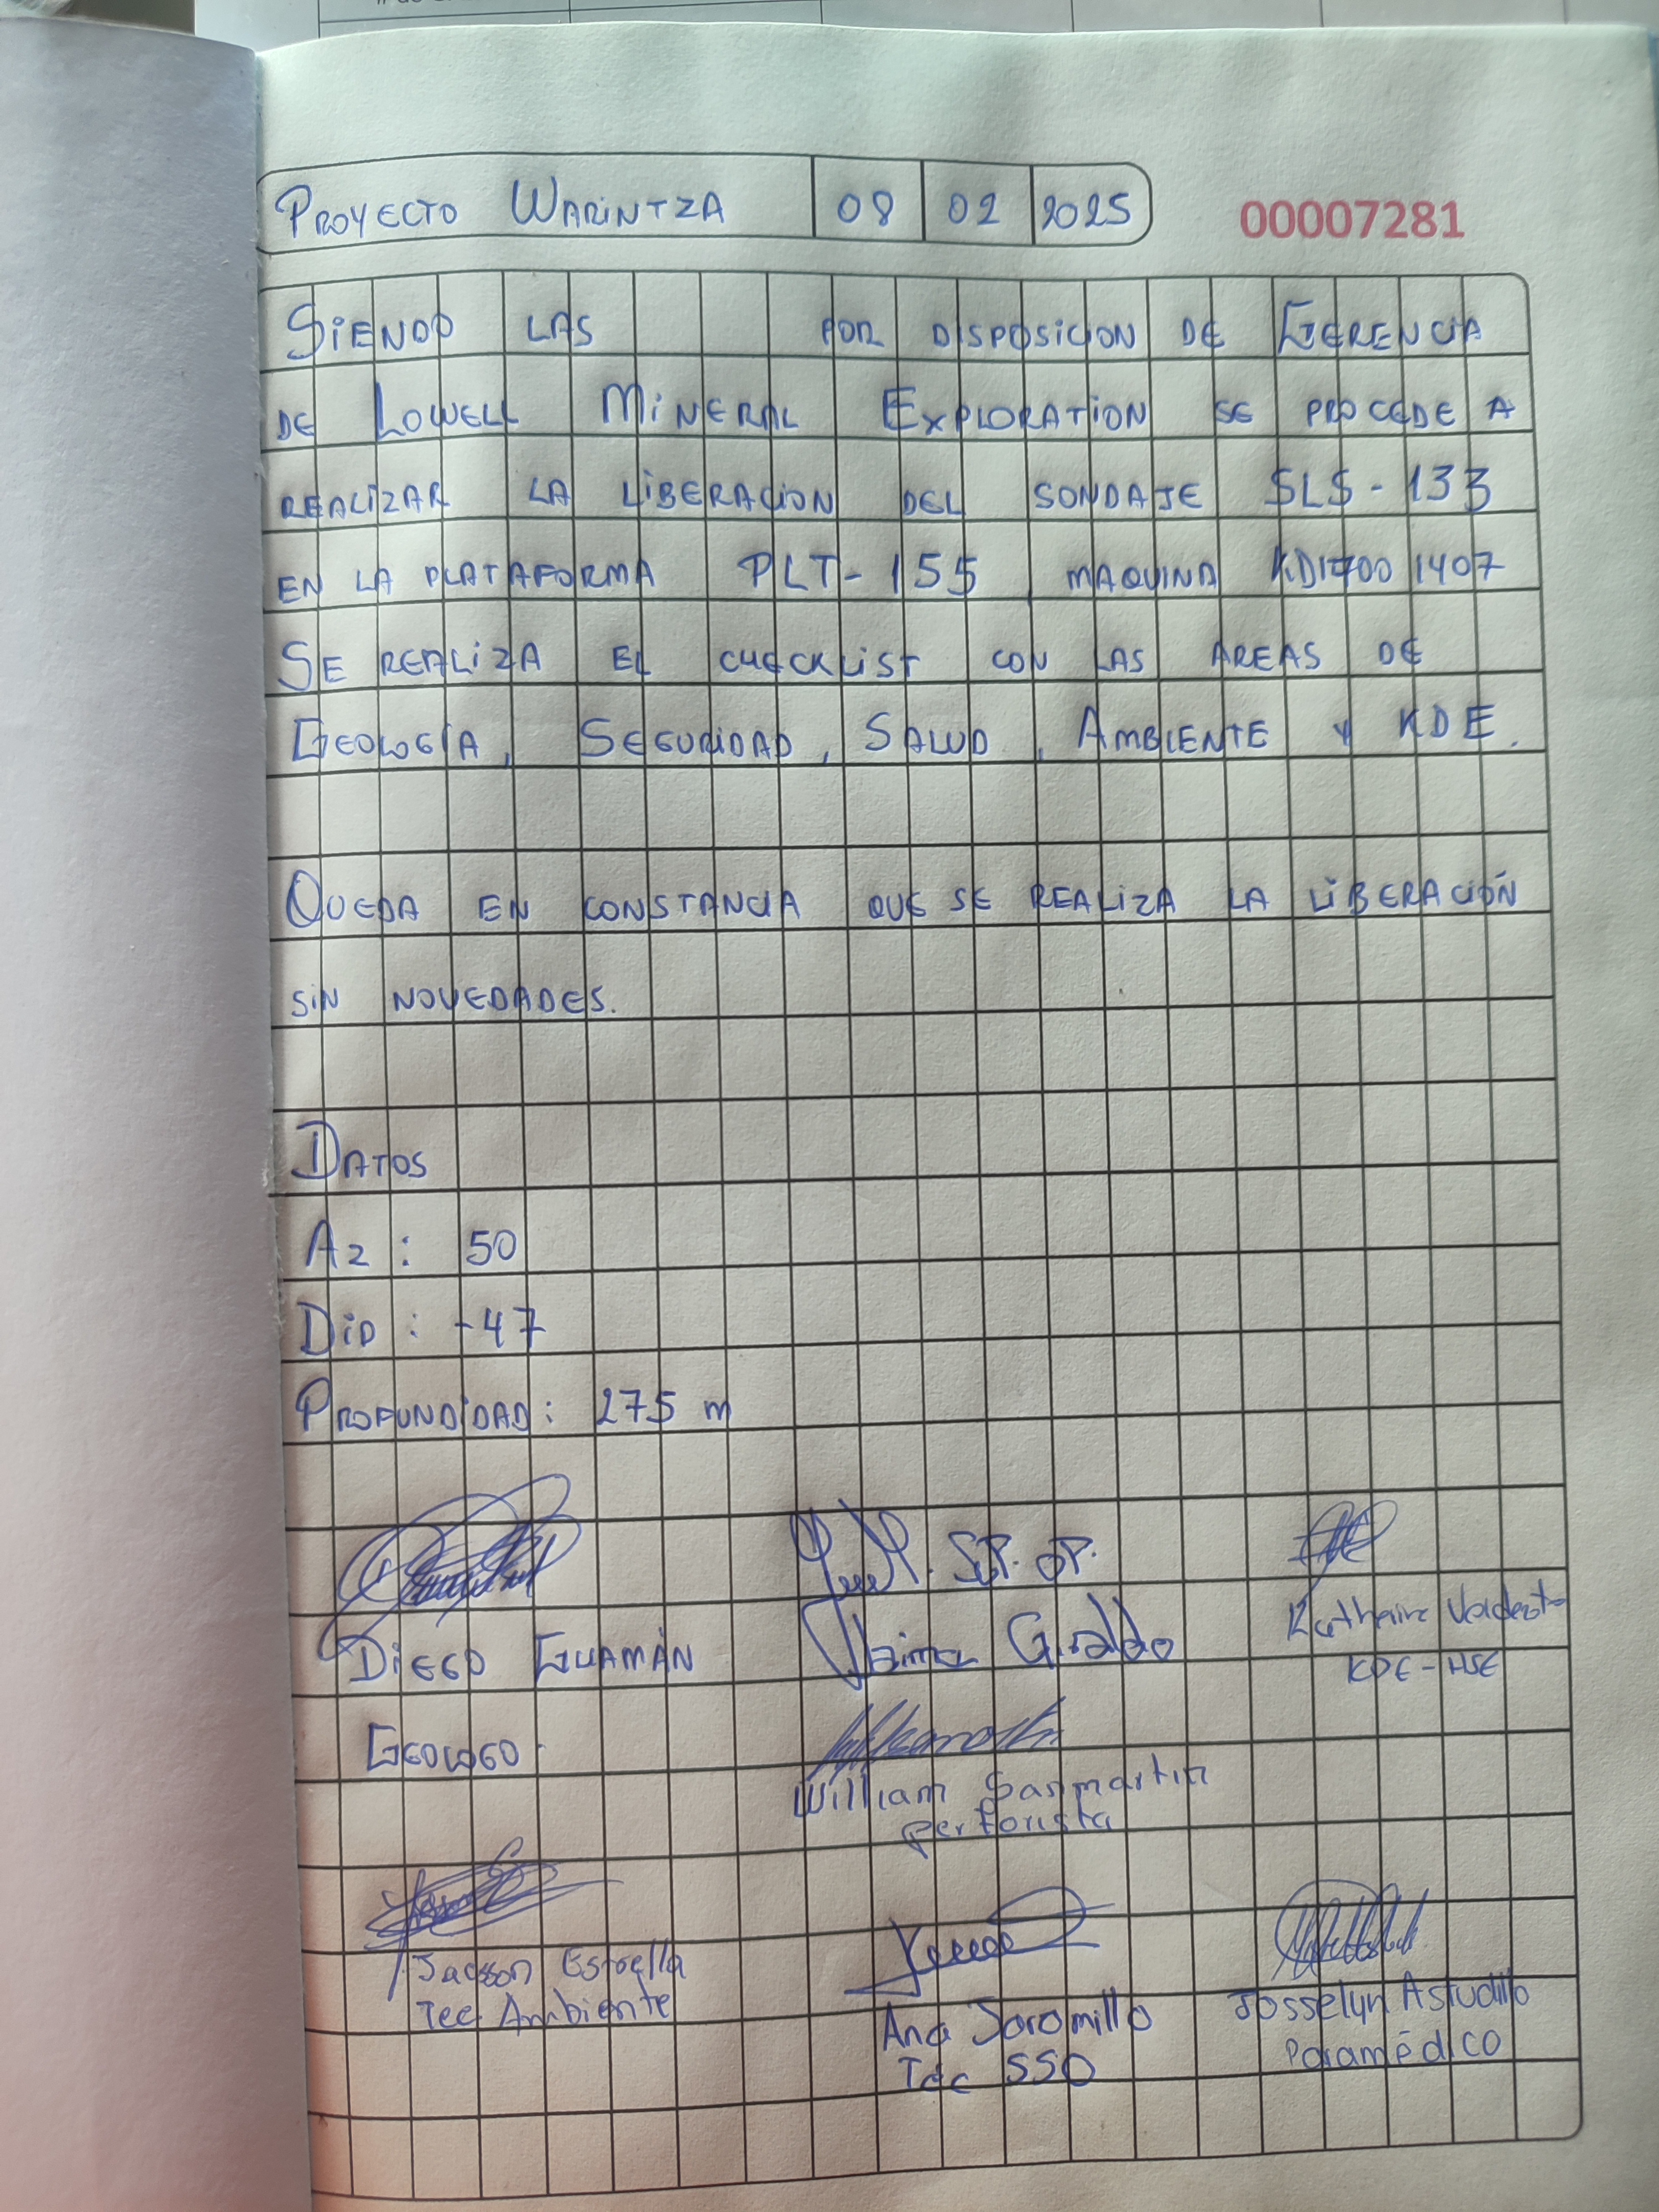 PROYECTO WARINTZA 08 02 2025 00007281
SIENDO LAS POR DISPOSICION DE GERENCIA
DE LOWELL MINERAL EXPLORATION SE PROCEDE A
REALIZAR LA LIBERACION DEL SONDAJE SLS-133
EN LA PLATAFORMA PLT-155, MAQUINA KD1700 1407
SE REALIZA EL CHECKLIST CON LAS AREAS DE
GEOLOGÍA, SEGURIDAD, SALUD, AMBIENTE Y KDE.
QUEDA EN CONSTANCIA QUE SE REALIZA LA LIBERACIÓN
SIN NOVEDADES.
DATOS
AZ: 50
DIP: -47
PROFUNDIDAD: 275 m
SUP. OP.
DIEGO GUAMÁN Giraldo Katherine
GEOLOGO. KDE-HSE
William Sanmartin
perforista
Jacson Estrella Ana Jaramillo Josselyn Astudillo
Tec Ambiente Tec SSO Paramédico